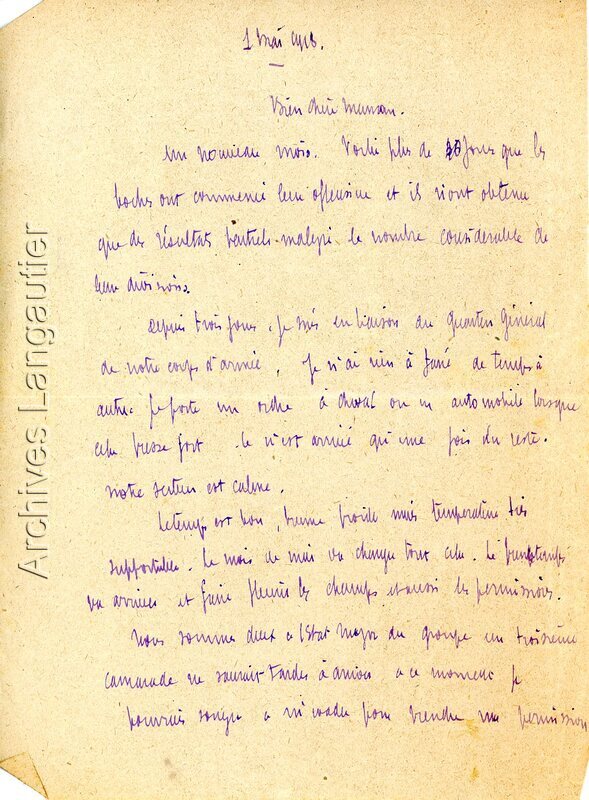 1 Mai 1918.
Bien chère Maman.
Un nouveau mois. Voilà plus de jours que les
boches ont commencé leur offensive et ils n'ont obtenu
que des résultats partiels malgré le nombre considérable de
leurs divisions.
Depuis trois jours, je suis en liaison au Quartier Général
de notre corps d'armée. Je n'ai rien à faire de temps à
autre. Je porte un ordre à cheval ou en automobile lorsque
cela presse fort. Ce n'est arrivé qu'une fois du reste.
Notre secteur est calme.
Le temps est bon, brume froide mais température très
supportable. Le mois de mai va changer tout cela. Le printemps
va arriver et faire fleurir les champs et aussi les permissions.
Nous sommes deux à l'Etat Major du groupe un troisième
camarade ne saurait tarder à arriver à ce moment je
pourrais songer à m'évader pour prendre ma permission
Archives Langautier